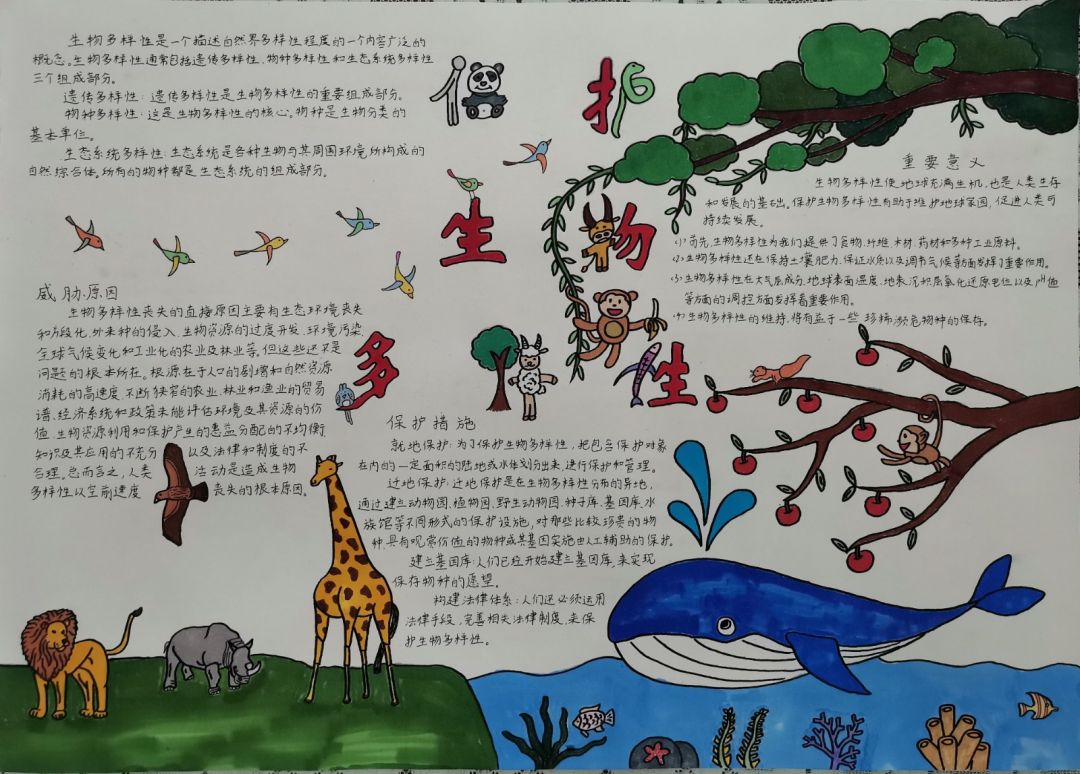 保护
生物
多样性
生物多样性是一个描述自然界多样性程度的一个内容广泛的
概念。生物多样性通常包括遗传多样性、物种多样性和生态系统多样性
三个组成部分。
遗传多样性：遗传多样性是生物多样性的重要组成部分。
物种多样性：这是生物多样性的核心。物种是生物分类的
基本单位。
生态系统多样性：生态系统是各种生物与其周围环境所构成的
自然综合体。所有的物种都是生态系统的组成部分。
威胁原因
生物多样性丧失的直接原因主要有生态环境丧失
和片段化、外来种的侵入、生物资源的过度开发、环境污染
全球气候变化和工业化的农业及林业等。但这些还不是
问题的根本所在。根源在于人口的剧增和自然资源
消耗的高速度、不断狭窄的农业、林业和渔业的贸易
谱、经济系统和政策未能评估环境及其资源的价
值、生物资源利用和保护产生的惠益分配的不均衡、
知识及其应用的不充分以及法律和制度的不
合理。总而言之，人类活动是造成生物
多样性以空前速度丧失的根本原因。
保护措施
就地保护：为了保护生物多样性，把包含保护对象
在内的一定面积的陆地或水体划分出来，进行保护和管理。
迁地保护：迁地保护是在生物多样性分布的异地，
通过建立动物园、植物园、野生动物园、种子库、基因库、水
族馆等不同形式的保护设施，对那些比较珍贵的物
种、具有观赏价值的物种或其基因实施由人工辅助的保护。
建立基因库：人们已经开始建立基因库，来实现
保存物种的愿望。
构建法律体系：人们还必须运用
法律手段，完善相关法律制度，来保
护生物多样性。
重要意义
生物多样性使地球充满生机，也是人类生存
和发展的基础。保护生物多样性有助于维护地球家园，促进人类可
持续发展。
(1)首先，生物多样性为我们提供了食物、纤维、木材、药材和多种工业原料。
(2)生物多样性还在保持土壤肥力、保证水质以及调节气候等方面发挥了重要作用。
(3)生物多样性在大气层成分、地球表面温度、地表沉积层氧化还原电位以及pH值
等方面的调控方面发挥着重要作用。
(4)生物多样性的维持，将有益于一些珍稀濒危物种的保存。